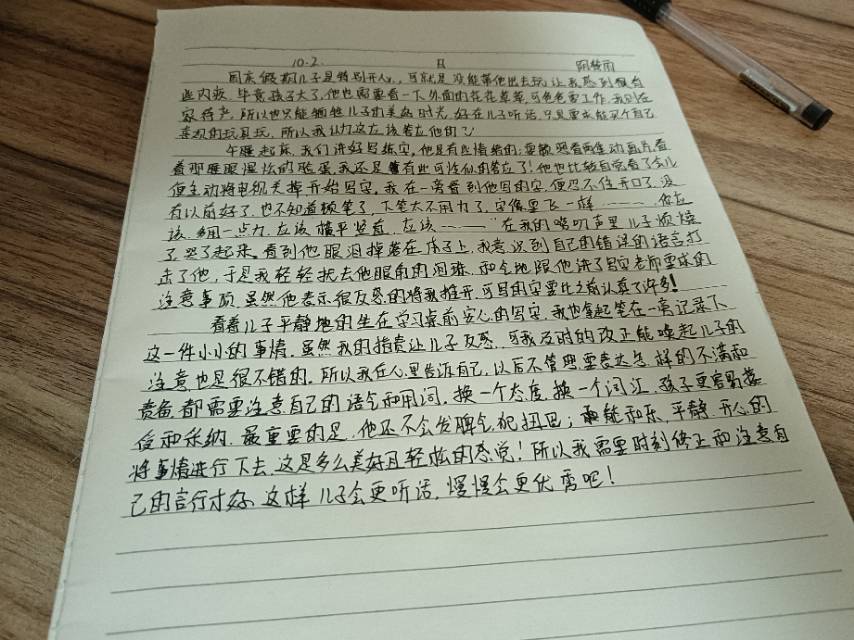 10.2. 日 阴转雨
国庆假期儿子是特别开心，可就是没能带他出去玩让我感到很有
些内疚。毕竟孩子大了，他也需要看一下外面的花花草草，可爸爸要工作，我则在
家待产，所以也只能牺牲儿子的美好时光，好在儿子听话，只是要求能买个自己
喜欢的玩具玩，所以我认为这应该着在他的
午睡起床，我们讲好写练字，他是有些情绪的：要撒 想看两集动画片看
着那睡眼湿炫的脸蛋，我还是有些可怜似的答应了！他也比较自觉看了会儿
便主动将电视关掉开始写字。我在一旁看到他写的字，便忍不住开口了，没
有以前好了，也不知道顿笔了，下笔太不用力了，字像要飞一样……，你应
该多用一点力，应该横平竖直，应该……”在我的唠叨声里儿子烦燥
了，哭了起来。看到他眼泪掉落在本子上，我意识到自己的错误的语言打
击了他，于是我轻轻拭去他眼角的泪珠，和全地跟他讲了写字老师要求的
注意事项，虽然他表示很反感的将我推开，可写的字要比之前认真了许多！
看着儿子平静地的坐在学习桌前安心的写字，我也拿起笔在一旁记录下
这一件小小的事情，虽然我的指责让儿子反感，可我及时的改正能唤起儿子的
注意也是很不错的。所以我在心里告诉自己，以后不管想要表达怎样的不满和
责备，都需要注意自己的语气和用词。换一个态度，换一个词汇，孩子更容易接
受和采纳，最重要的是，他还不会发脾气，犯扭巴；能和乐、平静、开心的
将事情进行下去，这是多么美好且轻松的感觉！所以我需要时刻修正和注意自
己的言行才好，这样儿子会更听话，慢慢会更优秀吧！